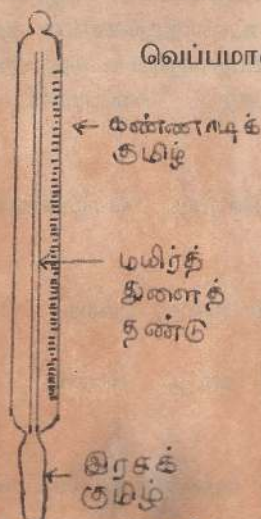 வெப்பமா
கண்ணாடிக்
குமிழ்
மயிர்த்
துளைத்
தண்டு
இரசக்
குமிழ்